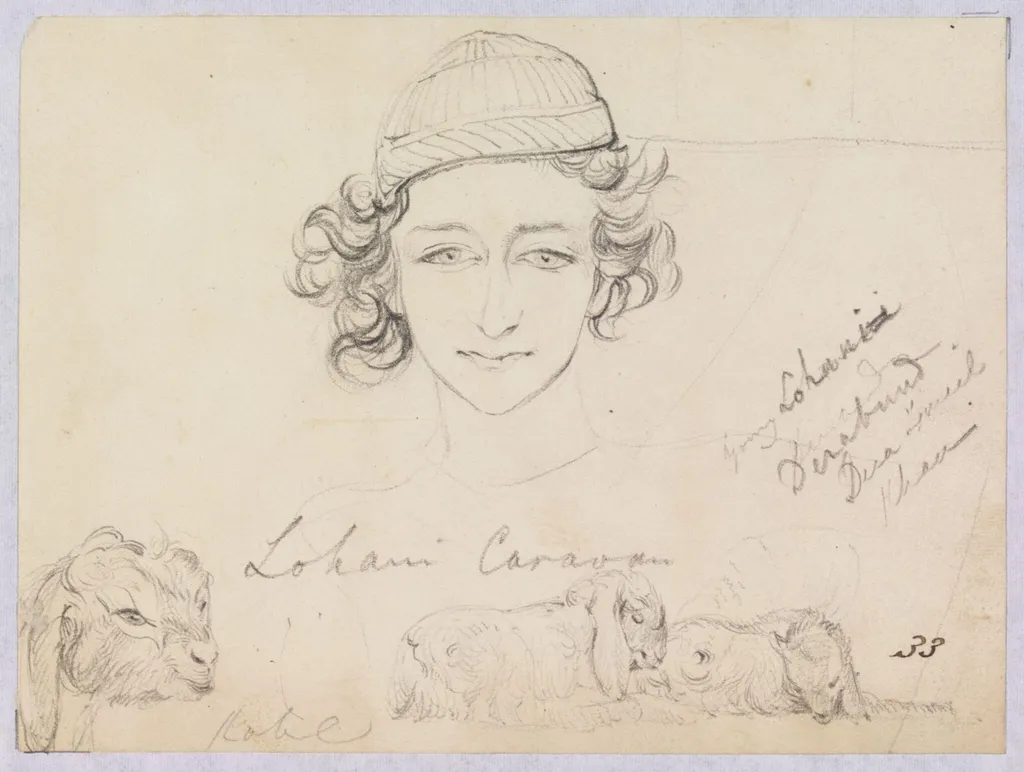 young Lohani
Derabund
Dera Ismail
Khan
Lohani Caravan
33
Kabul